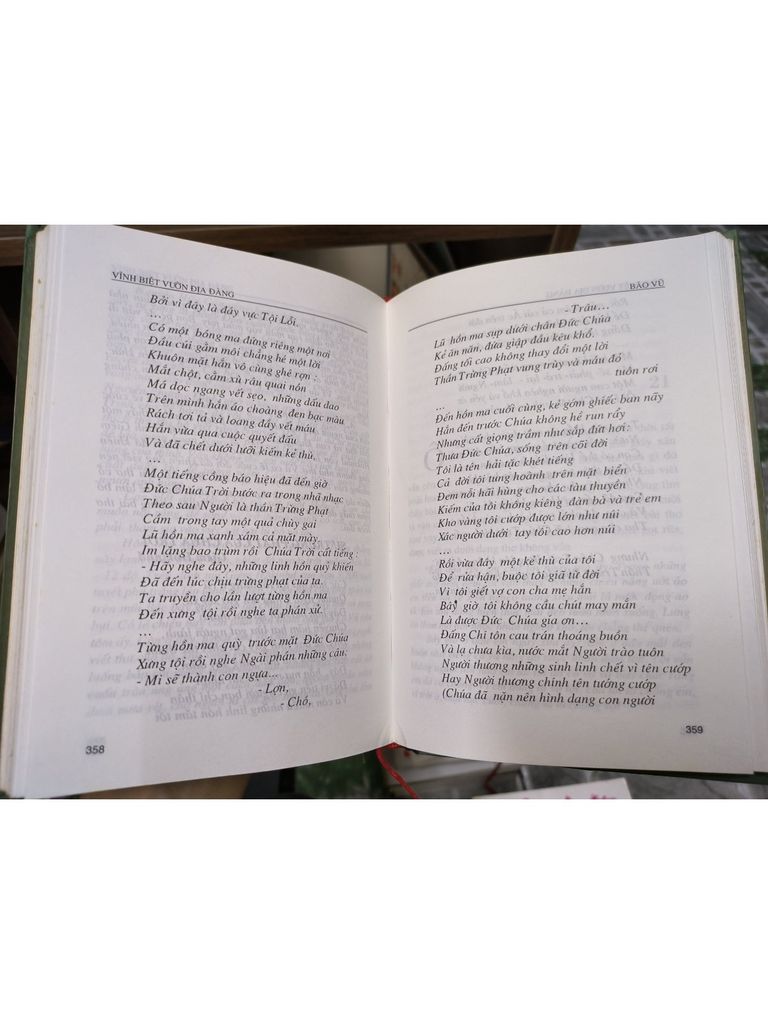 VĨNH BIỆT VƯỜN ĐỊA ĐÀNG
Bởi vì đây là đáy vực Tội Lỗi.
...
Có một bóng ma đứng riêng một nơi
Đầu cúi gằm môi chẳng hé một lời
Khuôn mặt hắn vô cùng ghê rợn :
Mắt chột, cằm xù râu quai nón
Má dọc ngang vết sẹo, những dấu dao
Trên mình hắn áo choàng đen bạc màu
Rách tơi tả và loang đầy vết máu
Hắn vừa qua cuộc quyết đấu
Và đã chết dưới lưỡi kiếm kẻ thù.
...
Một tiếng cồng báo hiệu đã đến giờ
Đức Chúa Trời bước ra trong nhã nhạc
Theo sau Người là thần Trừng Phạt
Cầm trong tay một quả chùy gai
Lũ hồn ma xanh xám cả mặt mày.
Im lặng bao trùm rồi Chúa Trời cất tiếng :
- Hãy nghe đây, những linh hồn quỷ khiến
Đã đến lúc chịu trừng phạt của ta.
Ta truyền cho lần lượt từng hồn ma
Đến xưng tội rồi nghe ta phán xử.
...
Từng hồn ma quỳ trước mặt Đức Chúa
Xưng tội rồi nghe Ngài phán những câu:
- Mi sẽ thành con ngựa...
- Lợn,
- Chó,
358
BÃO VŨ
- Trâu...
Lũ hồn ma sụp dưới chân Đức Chúa
Kẻ ăn năn, đứa giập đầu kêu khổ.
Đấng tối cao không thay đổi một lời
Thần Trừng Phạt vung trùy và máu đổ
tuôn rơi
...
Đến hồn ma cuối cùng, kẻ gớm ghiếc ban nãy
Hắn đến trước Chúa không hề run rẩy
Nhưng cất giọng trầm như sắp đứt hơi:
Thưa Đức Chúa, sống trên cõi đời
Tôi là tên hải tặc khét tiếng
Cả đời tôi tung hoành trên mặt biển
Đem nỗi hãi hùng cho các tàu thuyền
Kiếm của tôi không kiêng đàn bà và trẻ em
Kho vàng tôi cướp được lớn như núi
Xác người dưới tay tôi cao hơn núi
...
Rồi vừa đây một kẻ thù của tôi
Để rửa hận, buộc tôi giã từ đời
Vì tôi giết vợ con cha mẹ hắn
Bây giờ tôi không cầu chút may mắn
Là được Đức Chúa gia ơn...
Đấng Chí tôn cau trán thoáng buồn
Và lạ chưa kìa, nước mắt Người trào tuôn
Người thương những sinh linh chết vì tên cướp
Hay Người thương chính tên tướng cướp
(Chúa đã nặn nên hình dạng con người
359